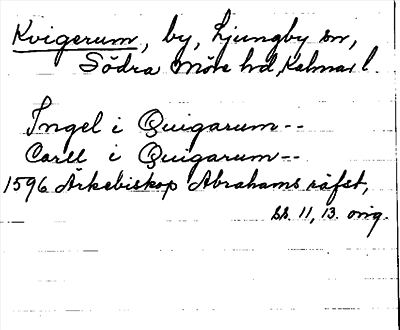 Kvigerum, by, Ljungby sn,
Södra Möre hd, Kalmar l.
Ingel i Quigarum--
Carll i Quigarum--
1596 Ärkebiskop Abrahams räfst,
ss. 11, 13. orig.